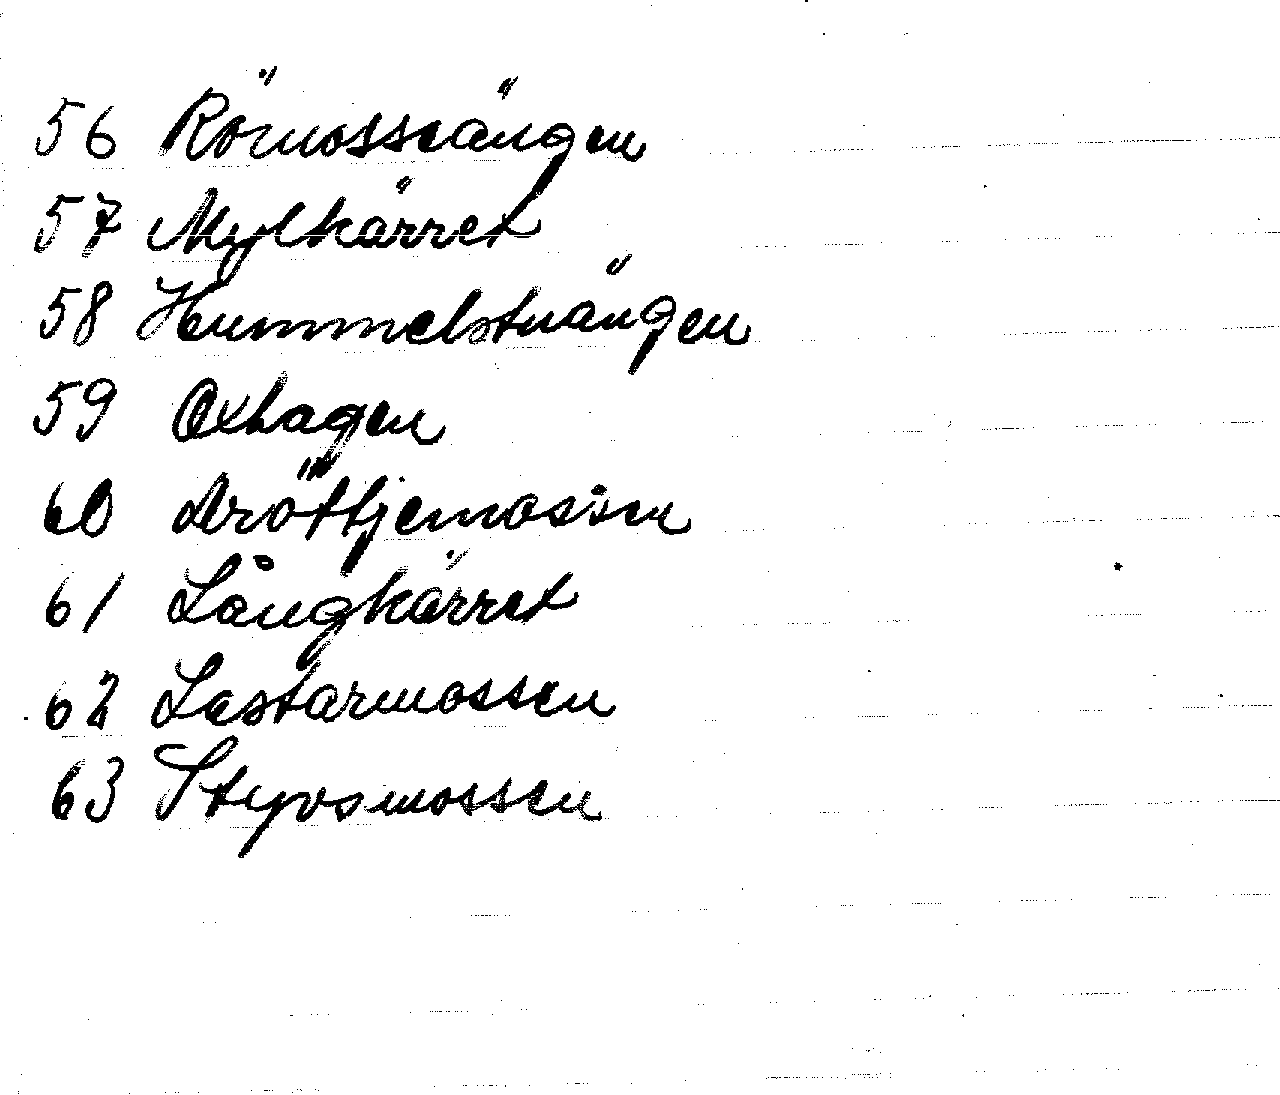 56 Römosseängen
57 Mylkärret
58 Hummelstuängen
59 Oxhagen
60 Dröttjemossen
61 Långkärret
62 Lastarmossen
63 Styvsmossen